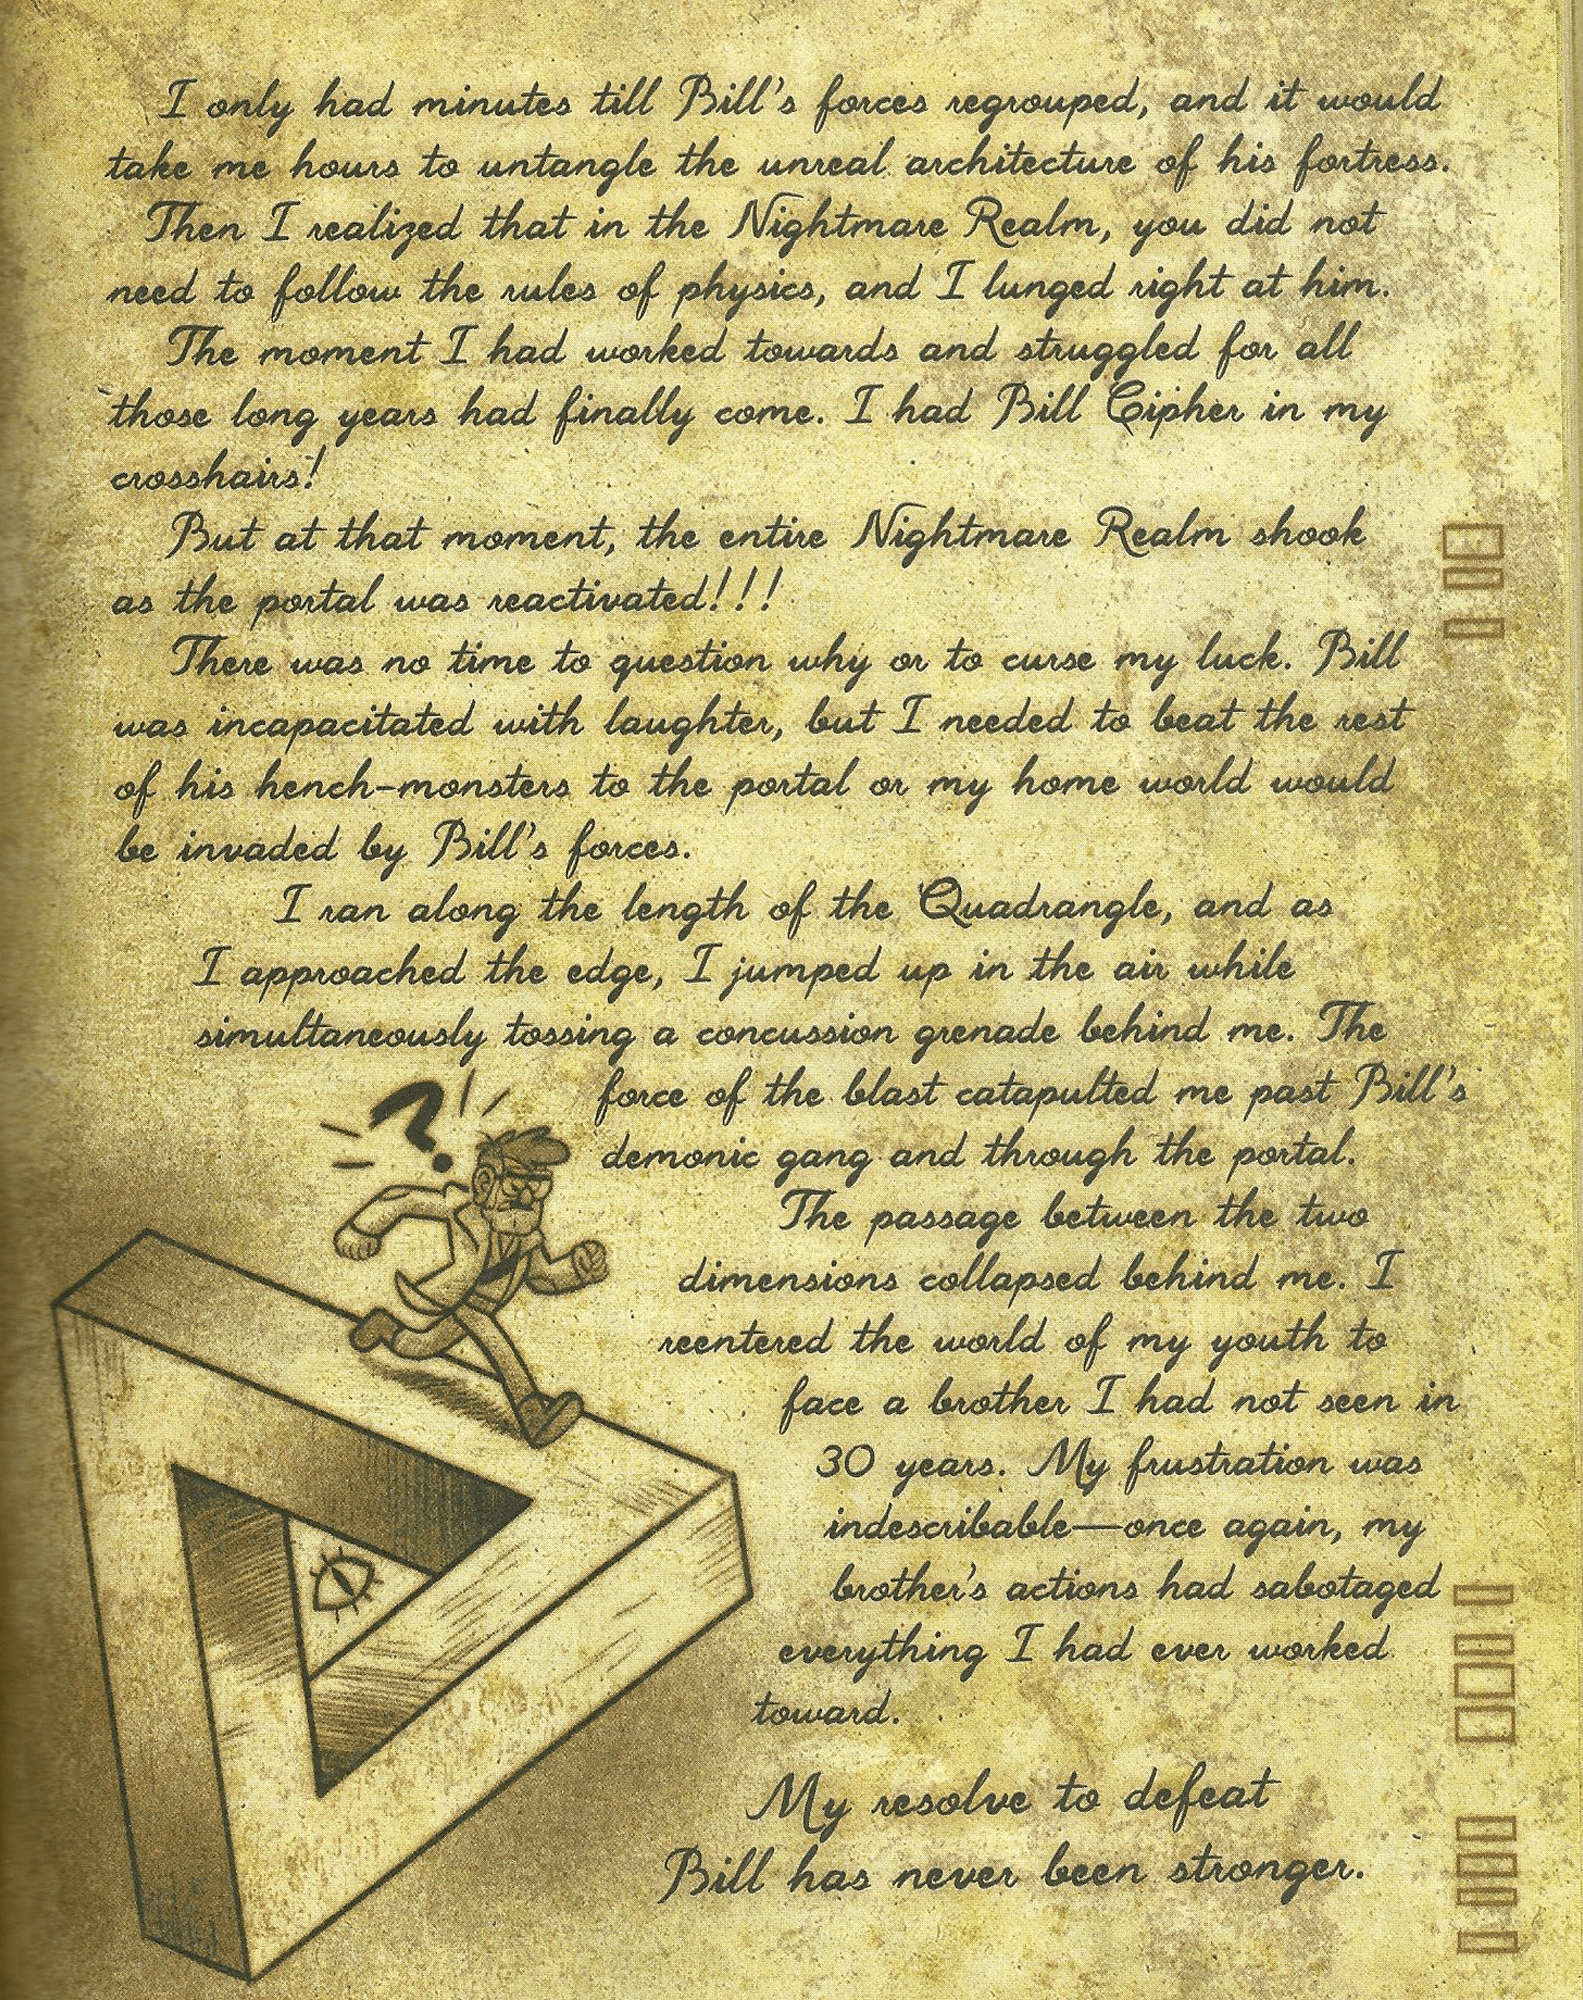 I only had minutes till Bill's forces regrouped, and it would
take me hours to untangle the unreal architecture of his fortress.
Then I realized that in the Nightmare Realm, you did not
need to follow the rules of physics, and I lunged right at him.
The moment I had worked towards and struggled for all
those long years had finally come. I had Bill Cipher in my
crosshairs!
But at that moment, the entire Nightmare Realm shook
as the portal was reactivated!!!
There was no time to question why or to curse my luck. Bill
was incapacitated with laughter, but I needed to beat the rest
of his hench-monsters to the portal or my home world would
be invaded by Bill's forces.
I ran along the length of the Quadrangle, and as
I approached the edge, I jumped up in the air while
simultaneously tossing a concussion grenade behind me. The
force of the blast catapulted me past Bill's
demonic gang and through the portal.
The passage between the two
dimensions collapsed behind me. I
reentered the world of my youth to
face a brother I had not seen in
30 years. My frustration was
indescribable—once again, my
brother's actions had sabotaged
everything I had ever worked
toward.
My resolve to defeat
Bill has never been stronger.
?